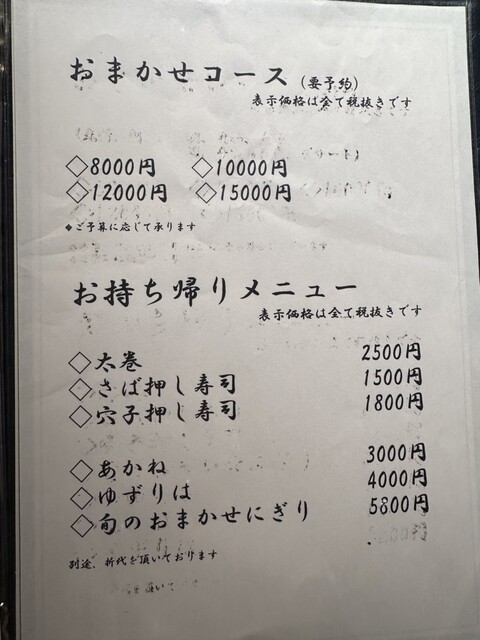 おまかせコース（要予約）
表示価格は全て税抜きです
◇8000円 ◇10000円
◇12000円 ◇15000円
◆ご予算に応じて承ります
お持ち帰りメニュー
表示価格は全て税抜きです
◇太巻 2500円
◇さば押し寿司 1500円
◇穴子押し寿司 1800円
◇あかね 3000円
◇ゆずりは 4000円
◇旬のおまかせにぎり 5800円
別途、折代を頂いております